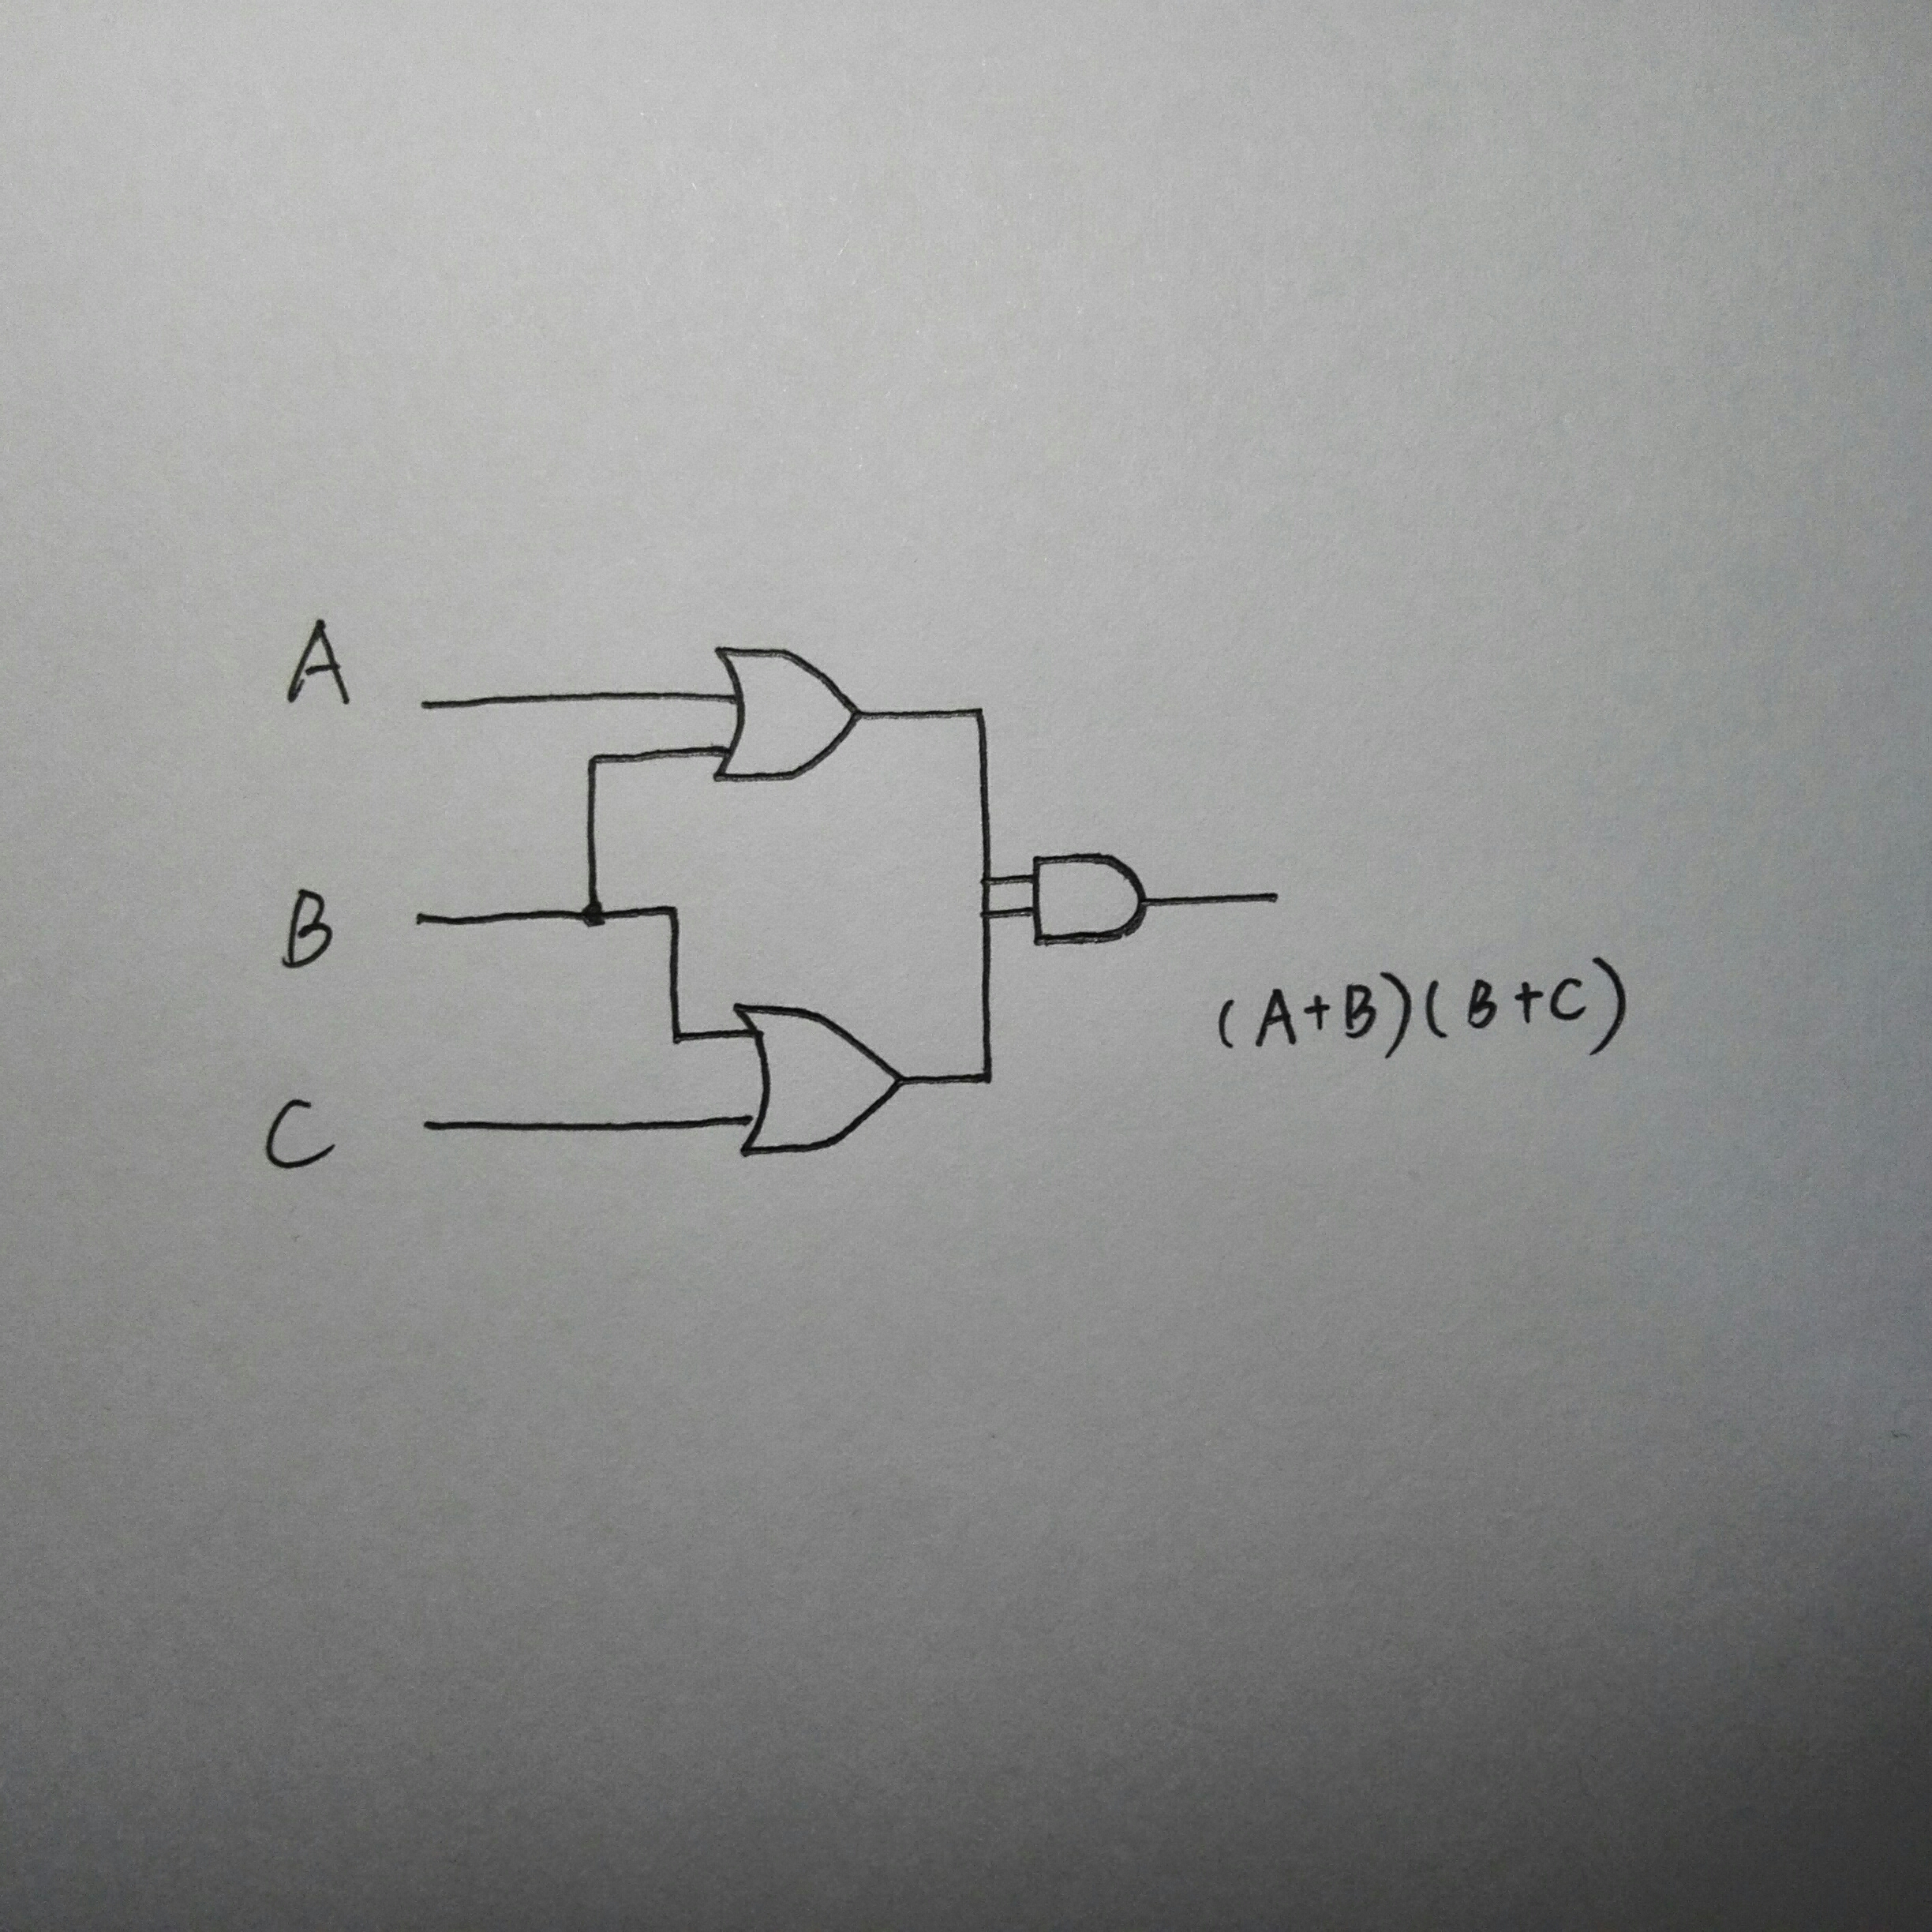 A
B
C
(A+B)(B+C)